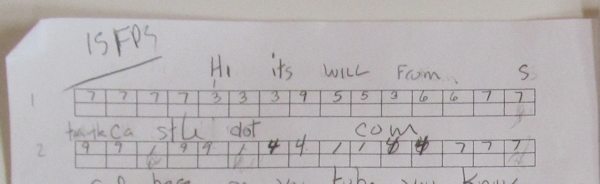 15FPS
Hi its WILL From S
1 7 7 7 7 3 3 3 9 5 5 3 6 6 7 7
tankCa stle dot com
2 9 9 1 9 9 1 4 4 1 1 4 4 7 7 7